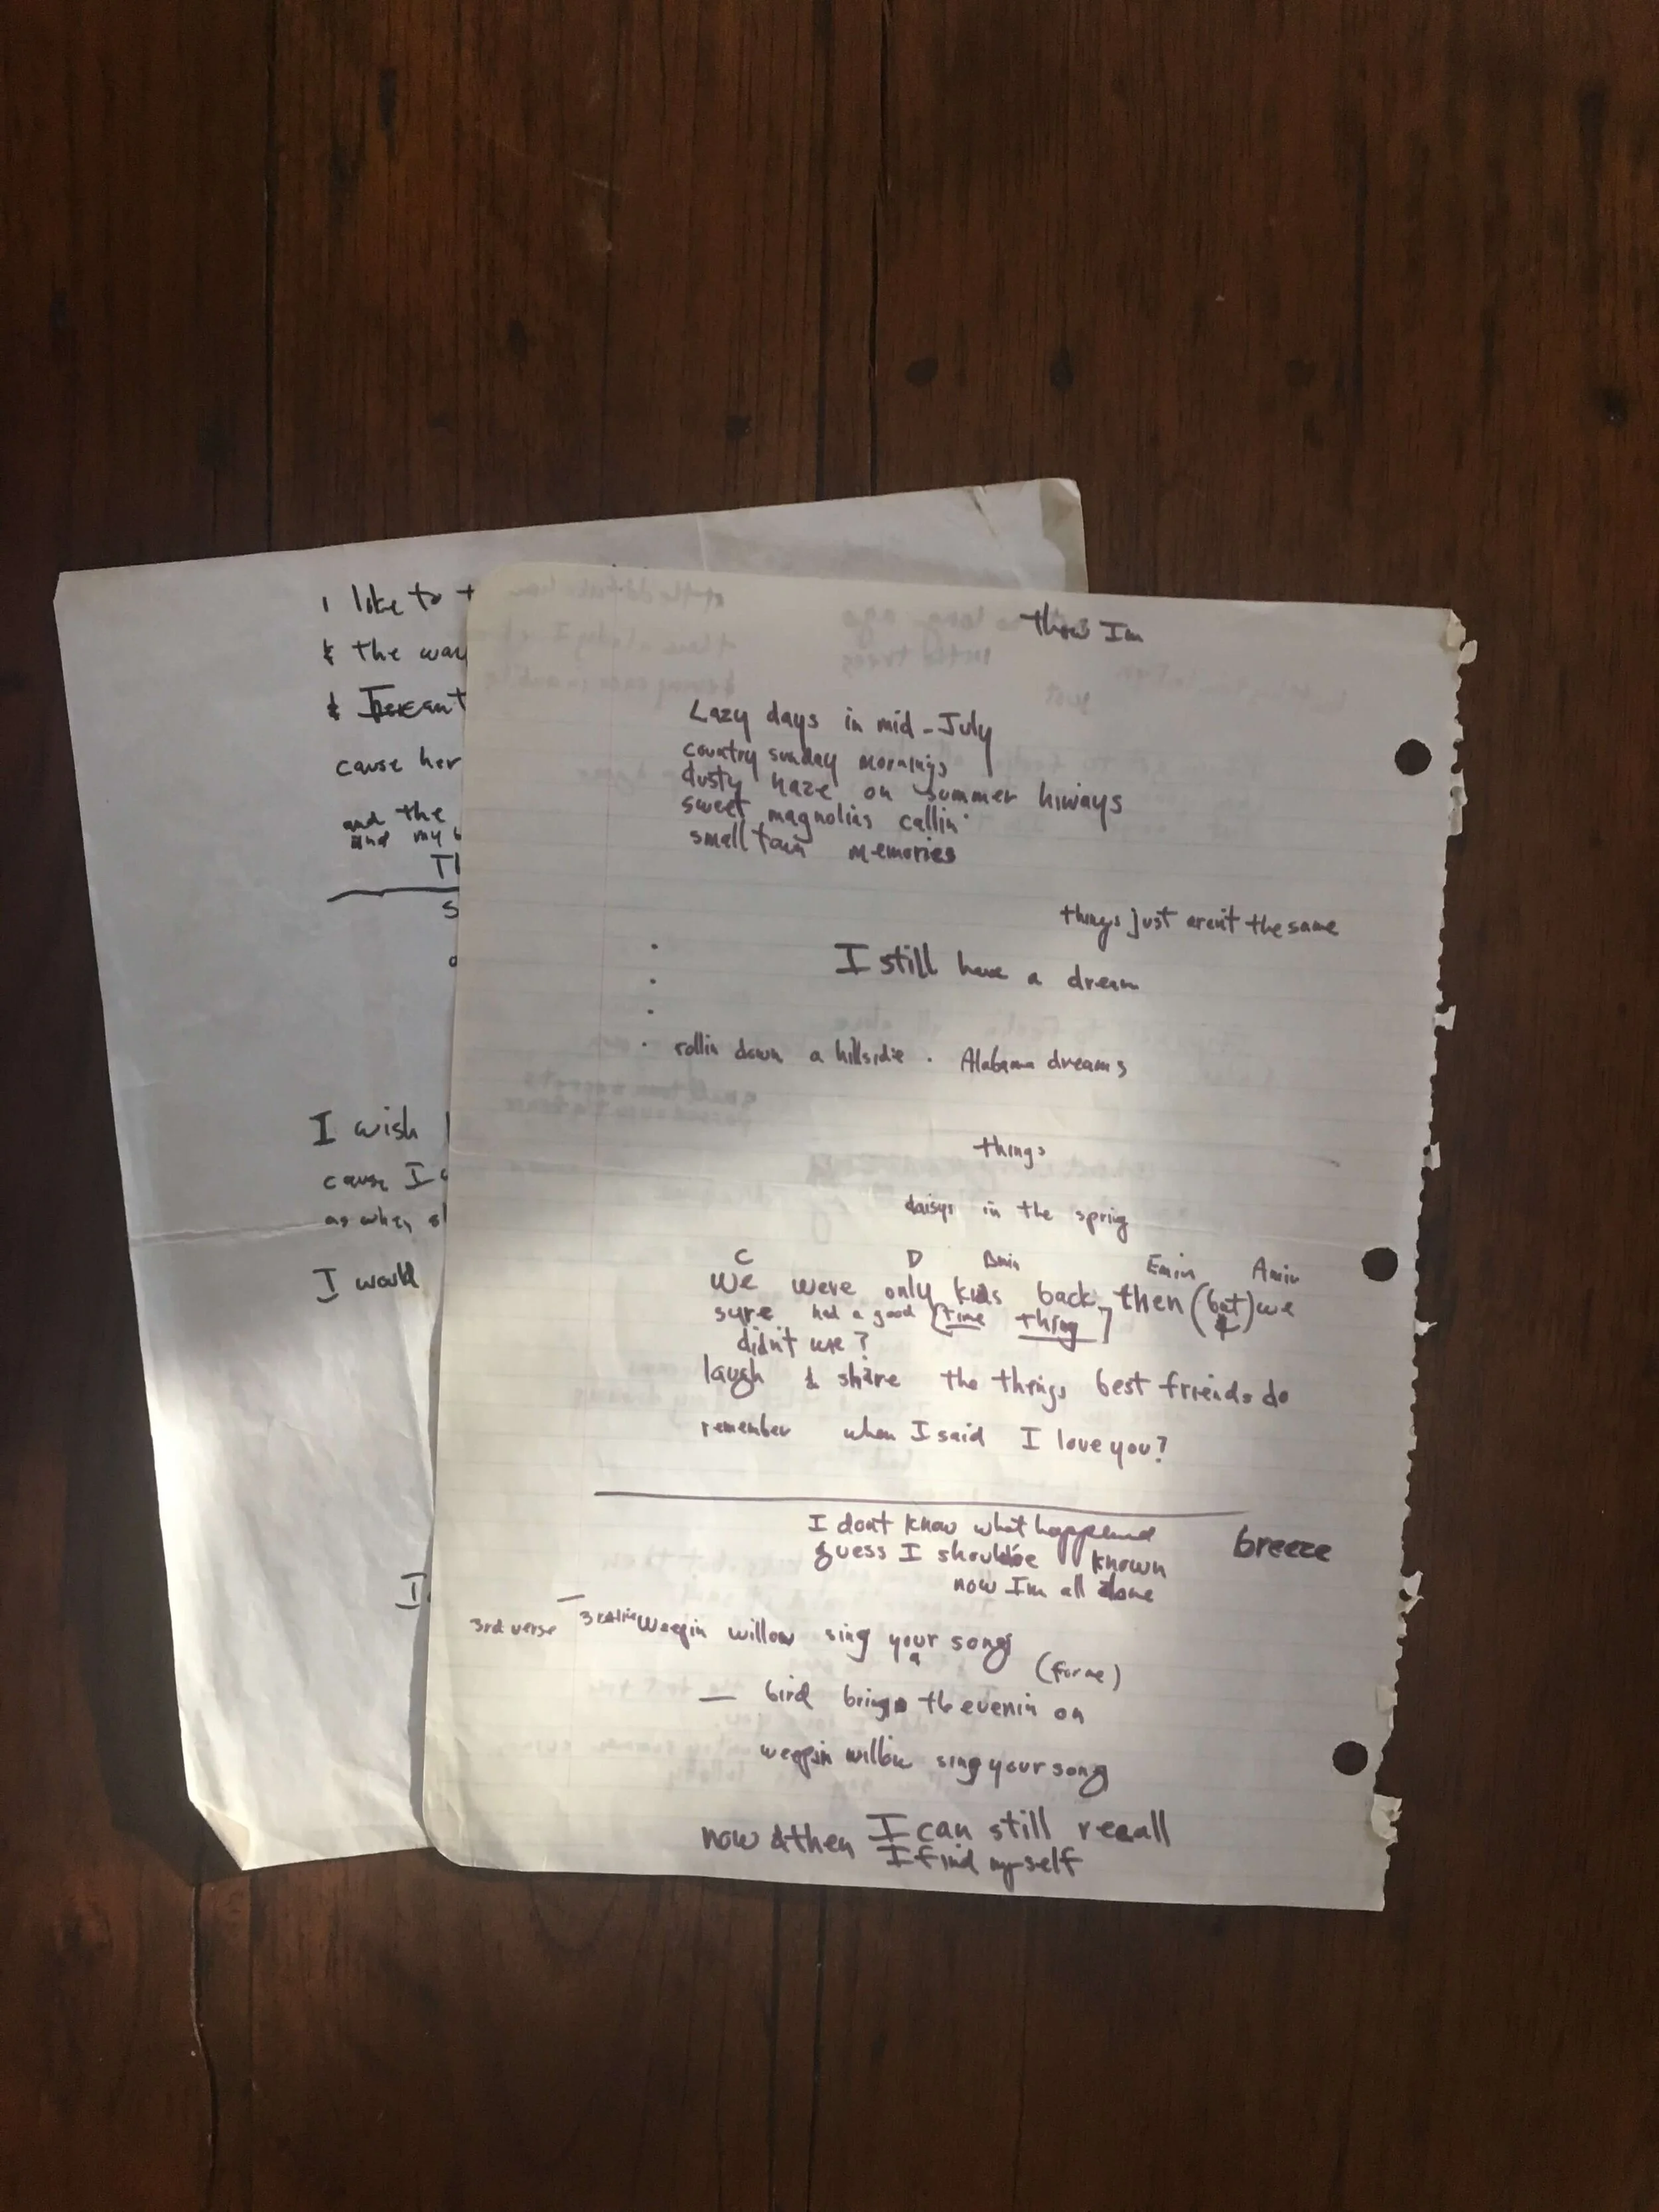 I like to
& the way
& I can't
cause her
and the
and my
I wish
cause I
as when
I would
I
Im
Lazy days in mid-July
country sunday mornings
dusty haze on summer hiways
sweet magnolias callin'
small town memories
things just aren't the same
I still have a dream
rollin down a hillside . Alabama dreams
things
daisys in the spring
C D Bmin Emin Amin
We were only kids back then (but) we
&
sure had a good [time thing]
didn't we?
laugh & share the things best friends do
remember when I said I love you?
I dont know what happened
breeze
guess I should've known
now Im all alone
3rd verse
Weepin willow sing your song
a
(for me)
— bird brings the evenin on
weepin willow sing your song
now & then I can still recall
I find myself